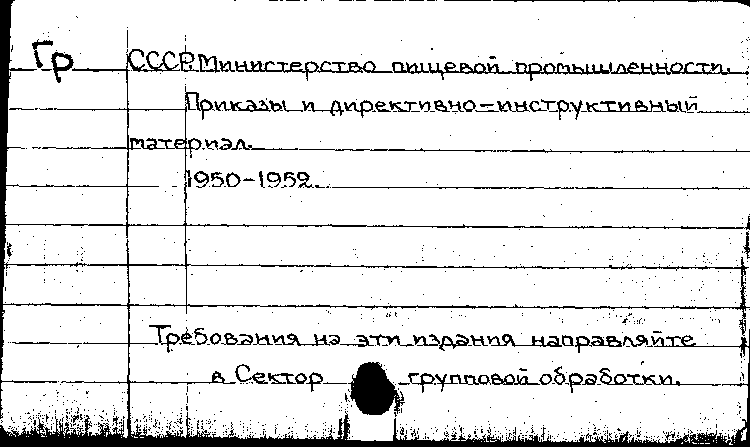 Гр СССР. Министерство пищевой промышленности.
Приказы и директивно-инструктивный
материал.
1950-1952.
Требования на эти издания направляйте
в Сектор групповой обработки.